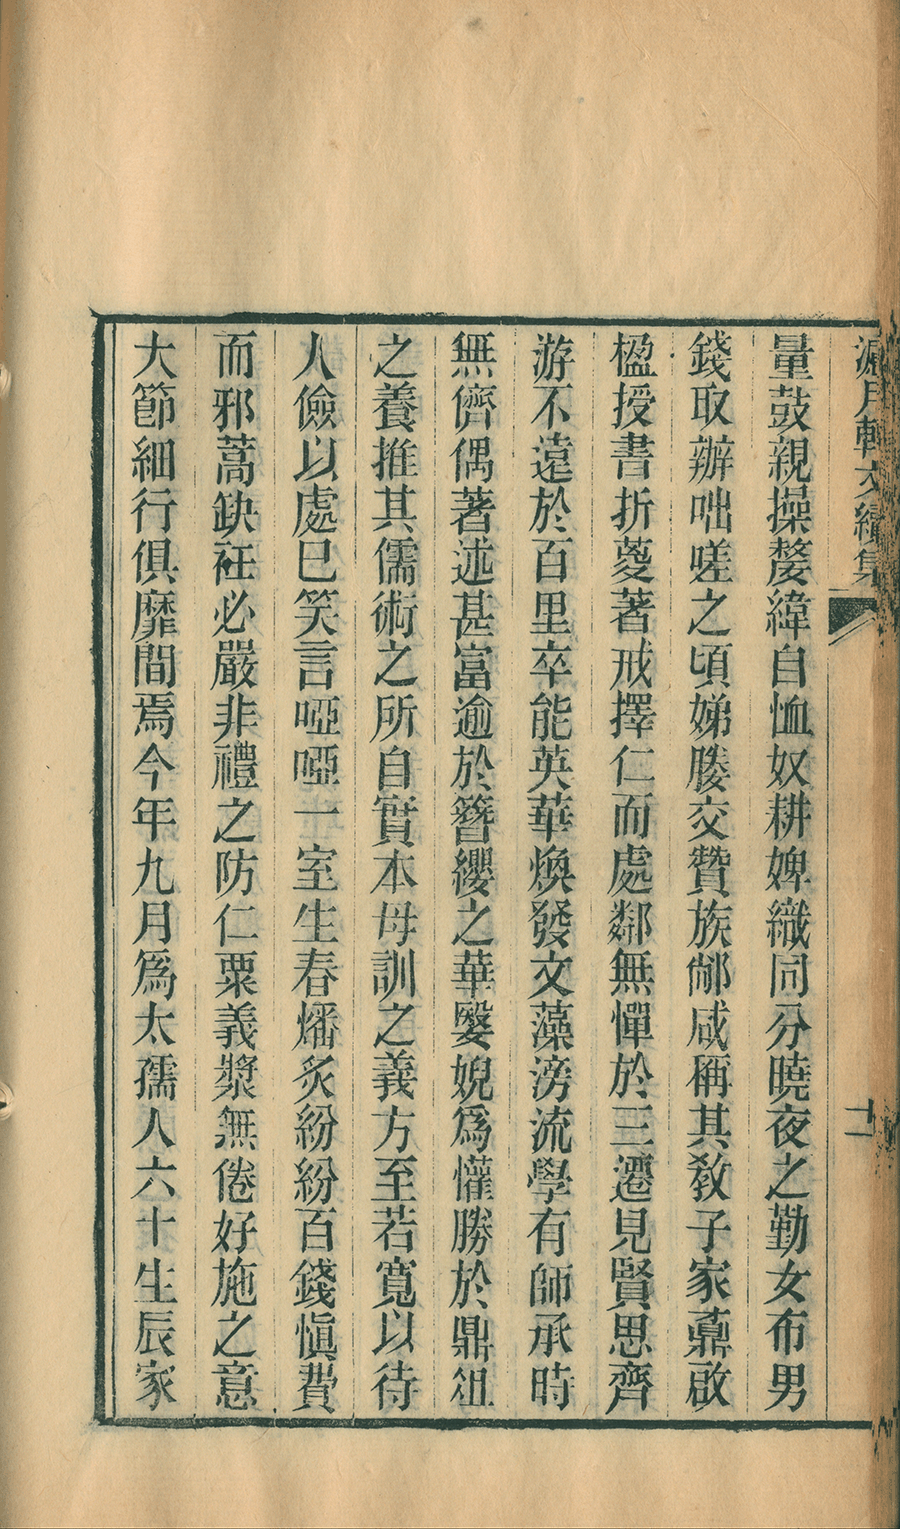 漏月軒文續集
十一
量鼓親操嫠緯自恤奴耕婢織同分曉夜之勤女布男
錢取辦咄嗟之頃娣媵交贊族鄉咸稱其敎子家鼐啟
楹授書折葼著戒擇仁而處鄰無憚於三遷見賢思齊
游不遠於百里卒能英華煥發文藻滂流學有師承時
無儕偶著述甚富逾於簪纓之華嫛婗爲懽勝於鼎俎
之養推其儒術之所自實本母訓之義方至若寬以待
人儉以處巳笑言啞啞一室生春燔炙紛紛百錢愼費
而邪蒿鈌衽必嚴非禮之防仁粟義漿無倦好施之意
大節細行俱靡間焉今年九月爲太孺人六十生辰家